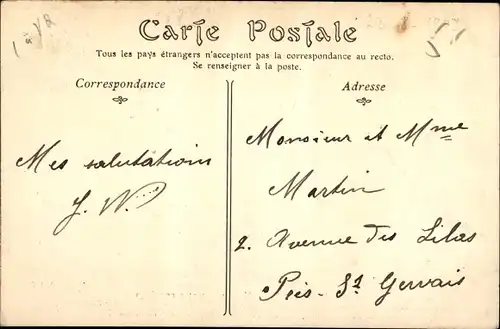 Carte Postale
Tous les pays étrangers n'acceptent pas la correspondance au recto.
Se renseigner à la poste.
Correspondance
Adresse
Mes salutations
J. W.
Monsieur et Mme
Martin
2. Avenue des Lilas
Prés-St Gervais